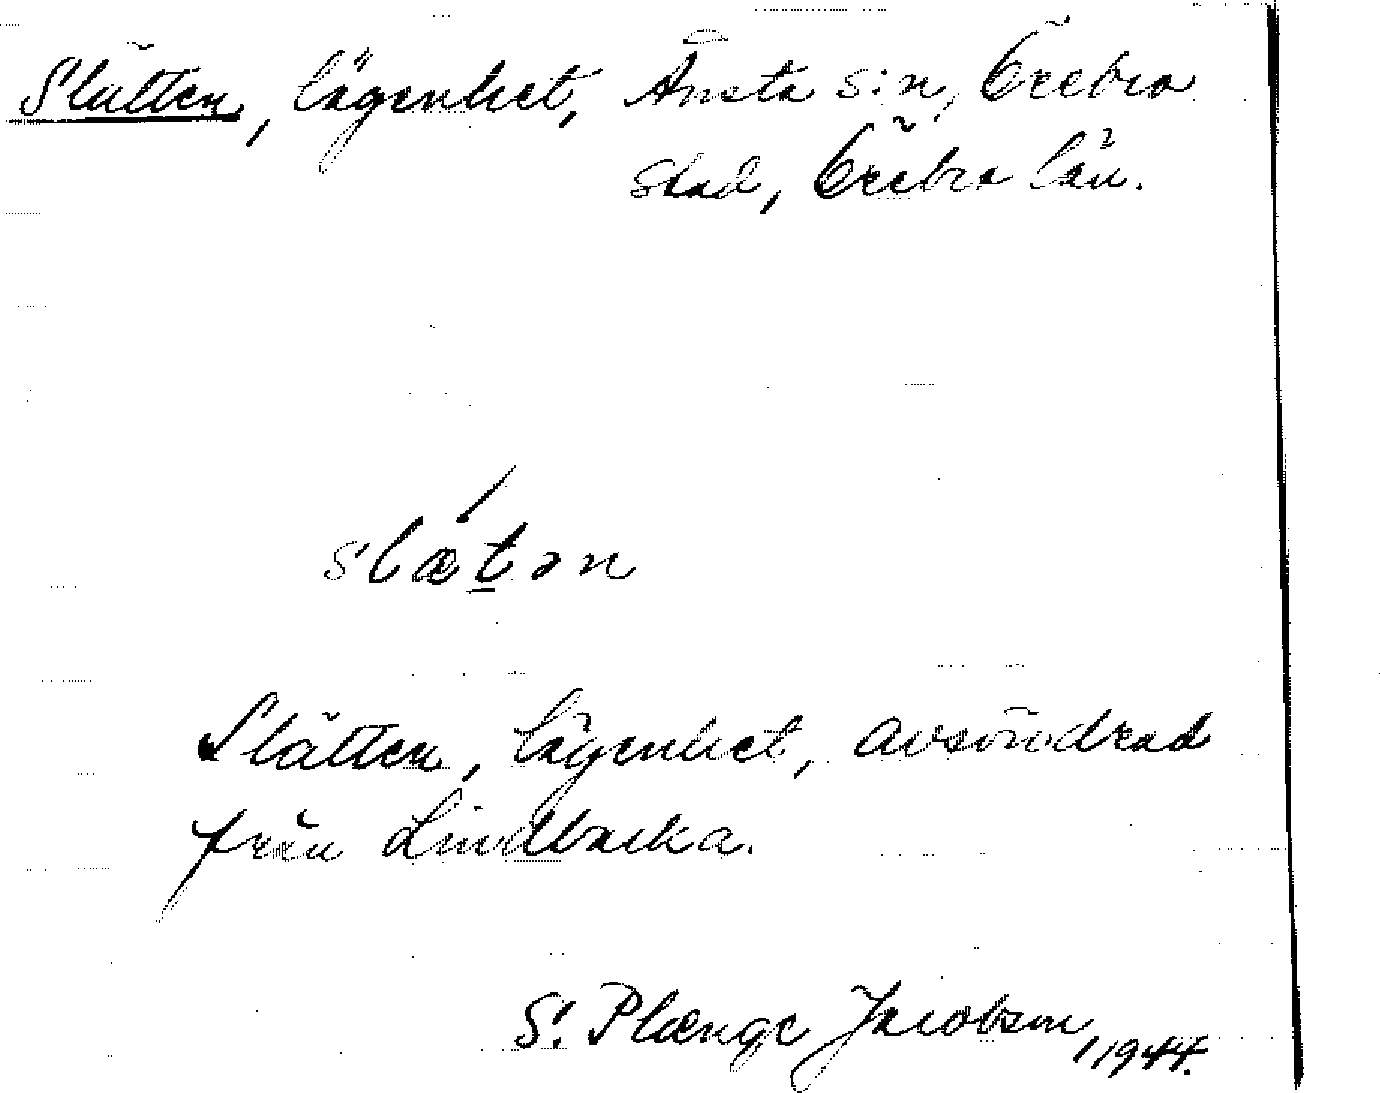 Slätten, lägenhet, Ånsta s:n, Örebro
stad, Örebro län.
slætən
Slätten, lägenhet, avsöndrad
från Lindbacka.
S. Plænge Jacobson, 1944.